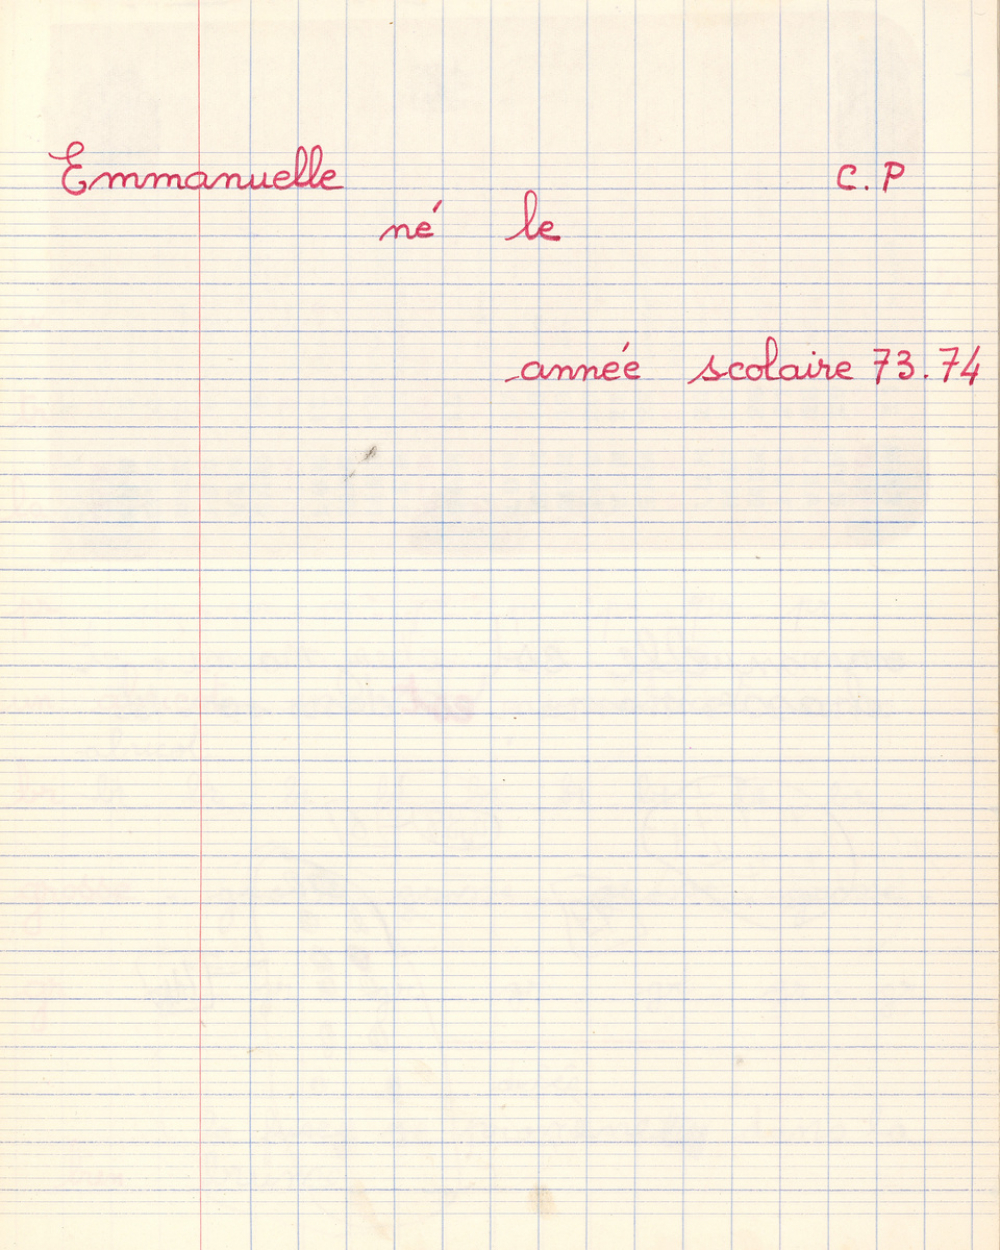 Emmanuelle C.P
né le
année scolaire 73.74